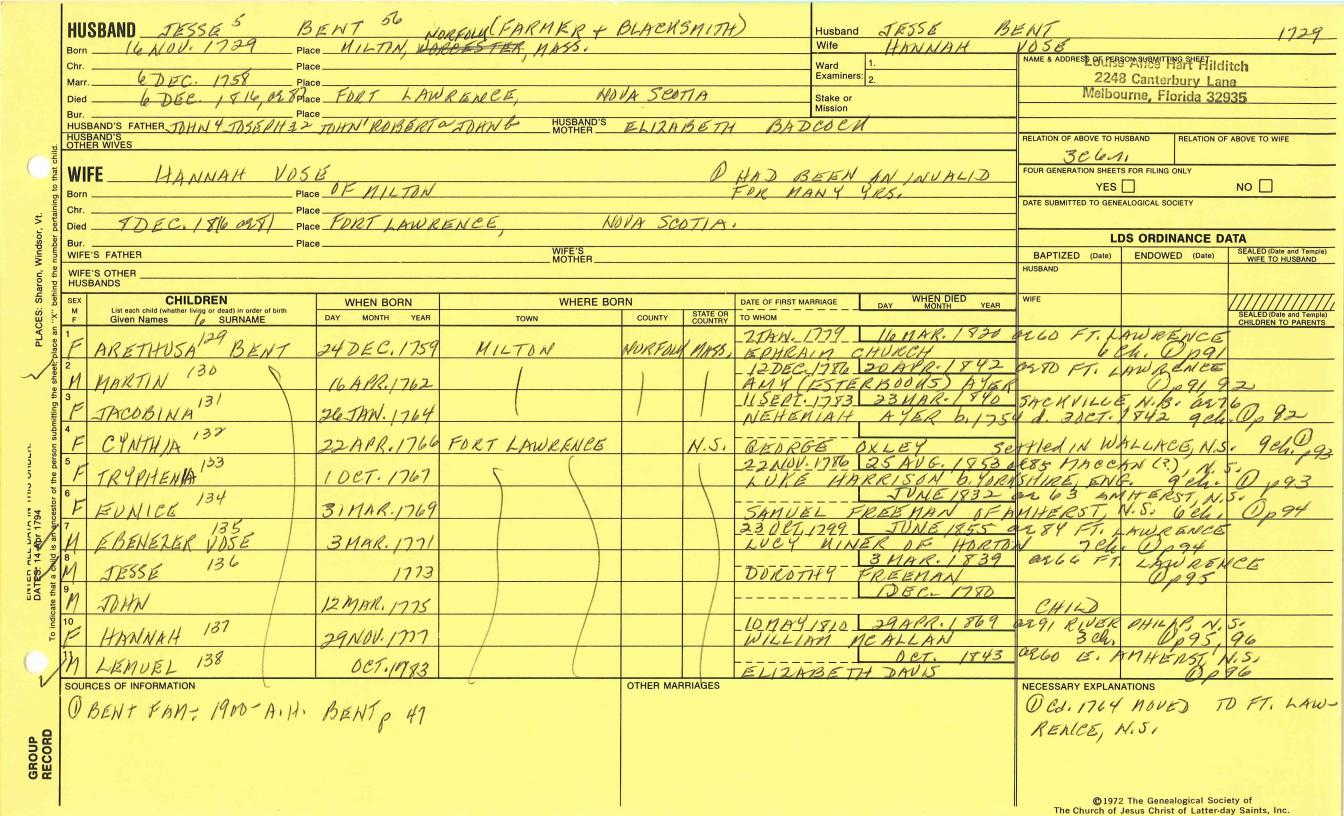 HUSBAND JESSE 5 BENT 56 (FARMER + BLACKSMITH)
Born 16 NOV. 1729 Place MILTON, WORCESTER, NORFOLK MASS.
Chr. Place
Marr. 6 DEC. 1758 Place
Died 6 DEC. 1816, ae 87 Place FORT LAWRENCE, NOVA SCOTIA
Bur. Place
HUSBAND'S FATHER JOHN 4 JOSEPH 3 2 JOHN 1 ROBERT a JOHN b HUSBAND'S MOTHER ELIZABETH BADCOCK
HUSBAND'S OTHER WIVES
WIFE HANNAH VOSE ① HAD BEEN AN INVALID
Born Place OF MILTON FOR MANY YRS.
Chr. Place
Died 8 DEC. 1816 ae 81 Place FORT LAWRENCE, NOVA SCOTIA.
Bur. Place
WIFE'S FATHER WIFE'S MOTHER
WIFE'S OTHER HUSBANDS
Husband JESSE BENT 1729
Wife HANNAH VOSE
Ward Examiners: 1.
2.
Stake or Mission
NAME & ADDRESS OF PERSON SUBMITTING SHEET
Louise Alice Hart Hilditch
2248 Canterbury Lane
Melbourne, Florida 32935
RELATION OF ABOVE TO HUSBAND RELATION OF ABOVE TO WIFE
3c 6n.
FOUR GENERATION SHEETS FOR FILING ONLY
YES NO
DATE SUBMITTED TO GENEALOGICAL SOCIETY
LDS ORDINANCE DATA
BAPTIZED (Date) ENDOWED (Date) SEALED (Date and Temple) WIFE TO HUSBAND
HUSBAND
WIFE
SEALED (Date and Temple) CHILDREN TO PARENTS
SEX M F
CHILDREN
List each child (whether living or dead) in order of birth
Given Names 6 SURNAME
WHEN BORN
DAY MONTH YEAR
WHERE BORN
TOWN COUNTY STATE OR COUNTRY
DATE OF FIRST MARRIAGE
TO WHOM
WHEN DIED
DAY MONTH YEAR
1 7 JAN. 1779 16 MAR. 1820 ae 60 FT. LAWRENCE
F ARETHUSA 129 BENT 24 DEC. 1759 MILTON NORFOLK MASS. EPHRAIM CHURCH 6 ch. ① p91
2 12 DEC. 1786 20 APR. 1842 ae 80 FT. LAWRENCE
M MARTIN 130 16 APR. 1762 AMY (ESTERBOODS) AYER ① p91, 92
3 11 SEPT. 1783 23 MAR. 1840 SACKVILLE N.B. ae 76
F JACOBINA 131 26 JAN. 1764 NEHEMIAH AYER b. 1754 d. 2 OCT. 1842 9 ch. ① p 92
4
F CYNTHIA 132 22 APR. 1766 FORT LAWRENCE N.S. GEORGE OXLEY Settled IN WALLACE, N.S. 9 ch. ① p93
5 22 NOV. 1786 25 AUG. 1853 ae 85 MACCAN (?), N.S.
F TRYPHENIA 133 1 OCT. 1767 LUKE HARRISON b. YORKSHIRE, ENG. 9 ch. ① p93
6 JUNE 1832 ae 63 AMHERST, N.S.
F EUNICE 134 31 MAR. 1769 SAMUEL FREEMAN OF AMHERST, N.S. 6 ch. ① p94
7 23 OCT. 1799 JUNE 1855 ae 84 FT. LAWRENCE
M EBENEZER VOSE 135 3 MAR. 1771 LUCY MINER OF HORTON 7 ch. ① p94
8 3 MAR. 1839 ae 66 FT. LAWRENCE
M JESSE 136 1773 DOROTHY FREEMAN ① p95
9 DEC. 1780
M JOHN 12 MAR. 1775 CHILD
10 10 MAY 1810 29 APR. 1869 ae 91 RIVER PHILAP, N.S.
F HANNAH 137 29 NOV. 1777 WILLIAM MCALLAN 3 ch. ① p95, 96
11 OCT. 1843 ae 60 E. AMHERST, N.S.
M LEMUEL 138 OCT. 1783 ELIZABETH DAVIS ① p96
SOURCES OF INFORMATION
① BENT FAM: 1900-A.H. BENT p 47
OTHER MARRIAGES
NECESSARY EXPLANATIONS
① Cd. 1764 MOVED TO FT. LAW-
RENCE, N.S.
©1972 The Genealogical Society of
The Church of Jesus Christ of Latter-day Saints, Inc.
PLACES: Sharon, Windsor, Vt.
To indicate that a child is an ancestor of the person submitting the sheet, place an "X" behind the number pertaining to that child.
ENTER ALL DATA IN THIS ORDER:
DATES: 14 Apr 1794
GROUP RECORD